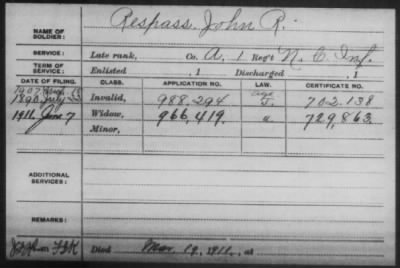 NAME OF SOLDIER: Respass, John R.
SERVICE: Late rank, Co. A, 1 Reg't N. C. Inf.
TERM OF SERVICE: Enlisted , 1 Discharged , 1
DATE OF FILING. CLASS. APPLICATION NO. LAW. CERTIFICATE NO.
1907
1890, July Invalid, 988,294 age J. 702.138
1911, Jun 7 Widow, 966,419. " 729,863.
Minor,
ADDITIONAL SERVICES:
REMARKS:
Died Mar. 19, 1911, at